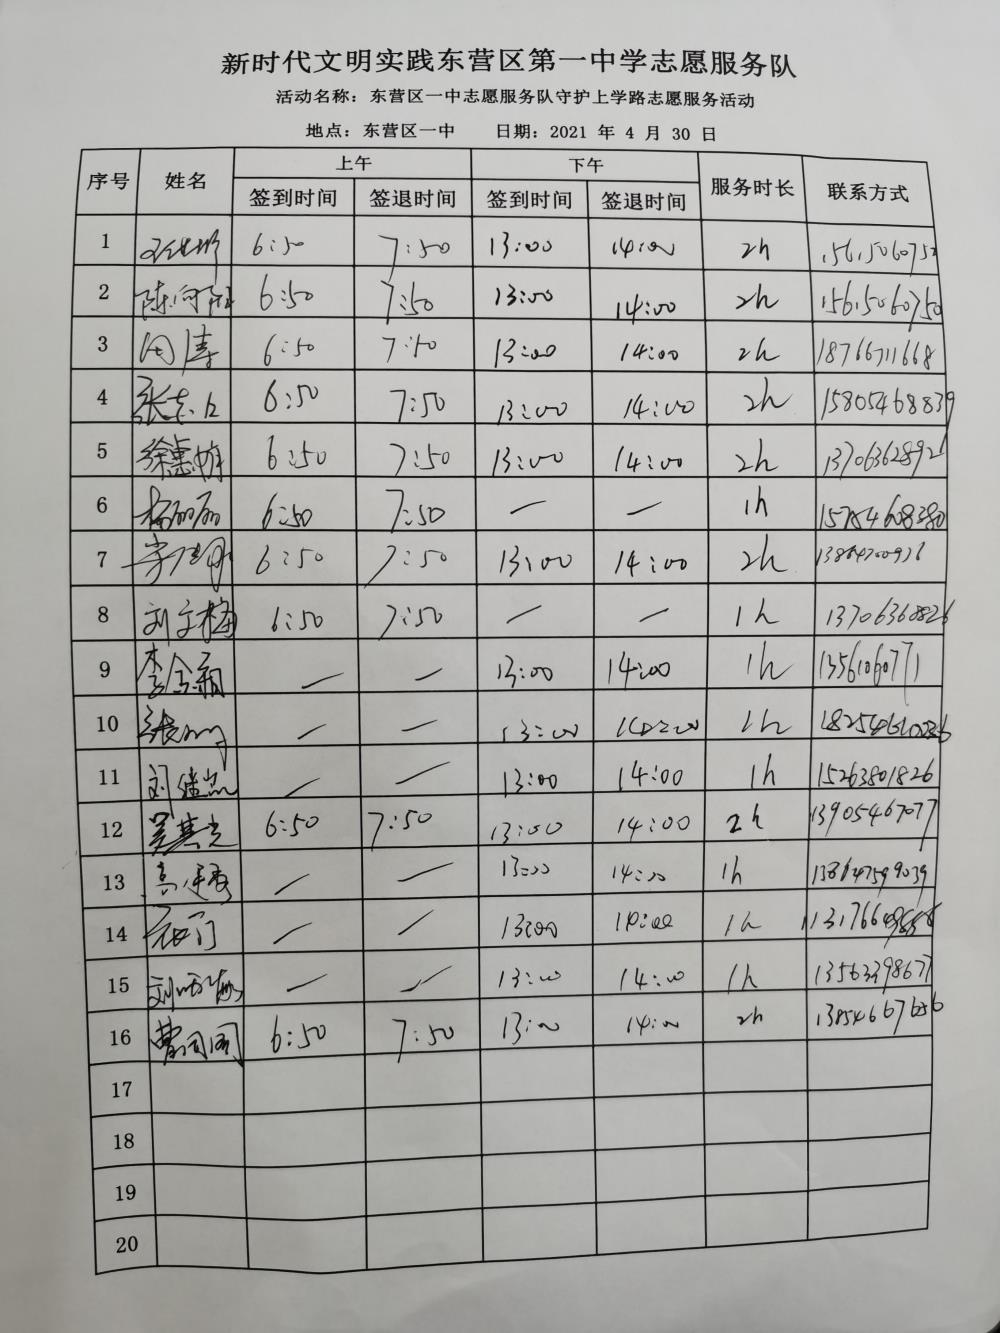 新时代文明实践东营区第一中学志愿服务队
活动名称：东营区一中志愿服务队守护上学路志愿服务活动
地点：东营区一中 日期：2021 年 4 月 30 日
序号 姓名 上午 下午 服务时长 联系方式
签到时间 签退时间 签到时间 签退时间
1 6:50 7:50 13:00 14:00 2h 15615060752
2 陈向阳 6:50 7:50 13:00 14:00 2h 15615060750
3 周涛 6:50 7:50 13:00 14:00 2h 18766711668
4 6:50 7:50 13:00 14:00 2h 15805468839
5 徐惠娟 6:50 7:50 13:00 14:00 2h
6 杨丽丽 6:50 7:50 — — 1h
7 6:50 7:50 13:00 14:00 2h
8 刘文梅 6:50 7:50 — — 1h 13706360826
9 李金霜 — — 13:00 14:00 1h 13561060771
10 — — 13:00 14:00 1h
11 — — 13:00 14:00 1h 15263801826
12 吴其光 6:50 7:50 13:00 14:00 2h 13905467077
13 — — 13:00 14:00 1h 13864759039
14 — — 13:00 14:00 1h
15 — — 13:00 14:00 1h 13563398677
16 6:50 7:50 13:00 14:00 2h
17
18
19
20